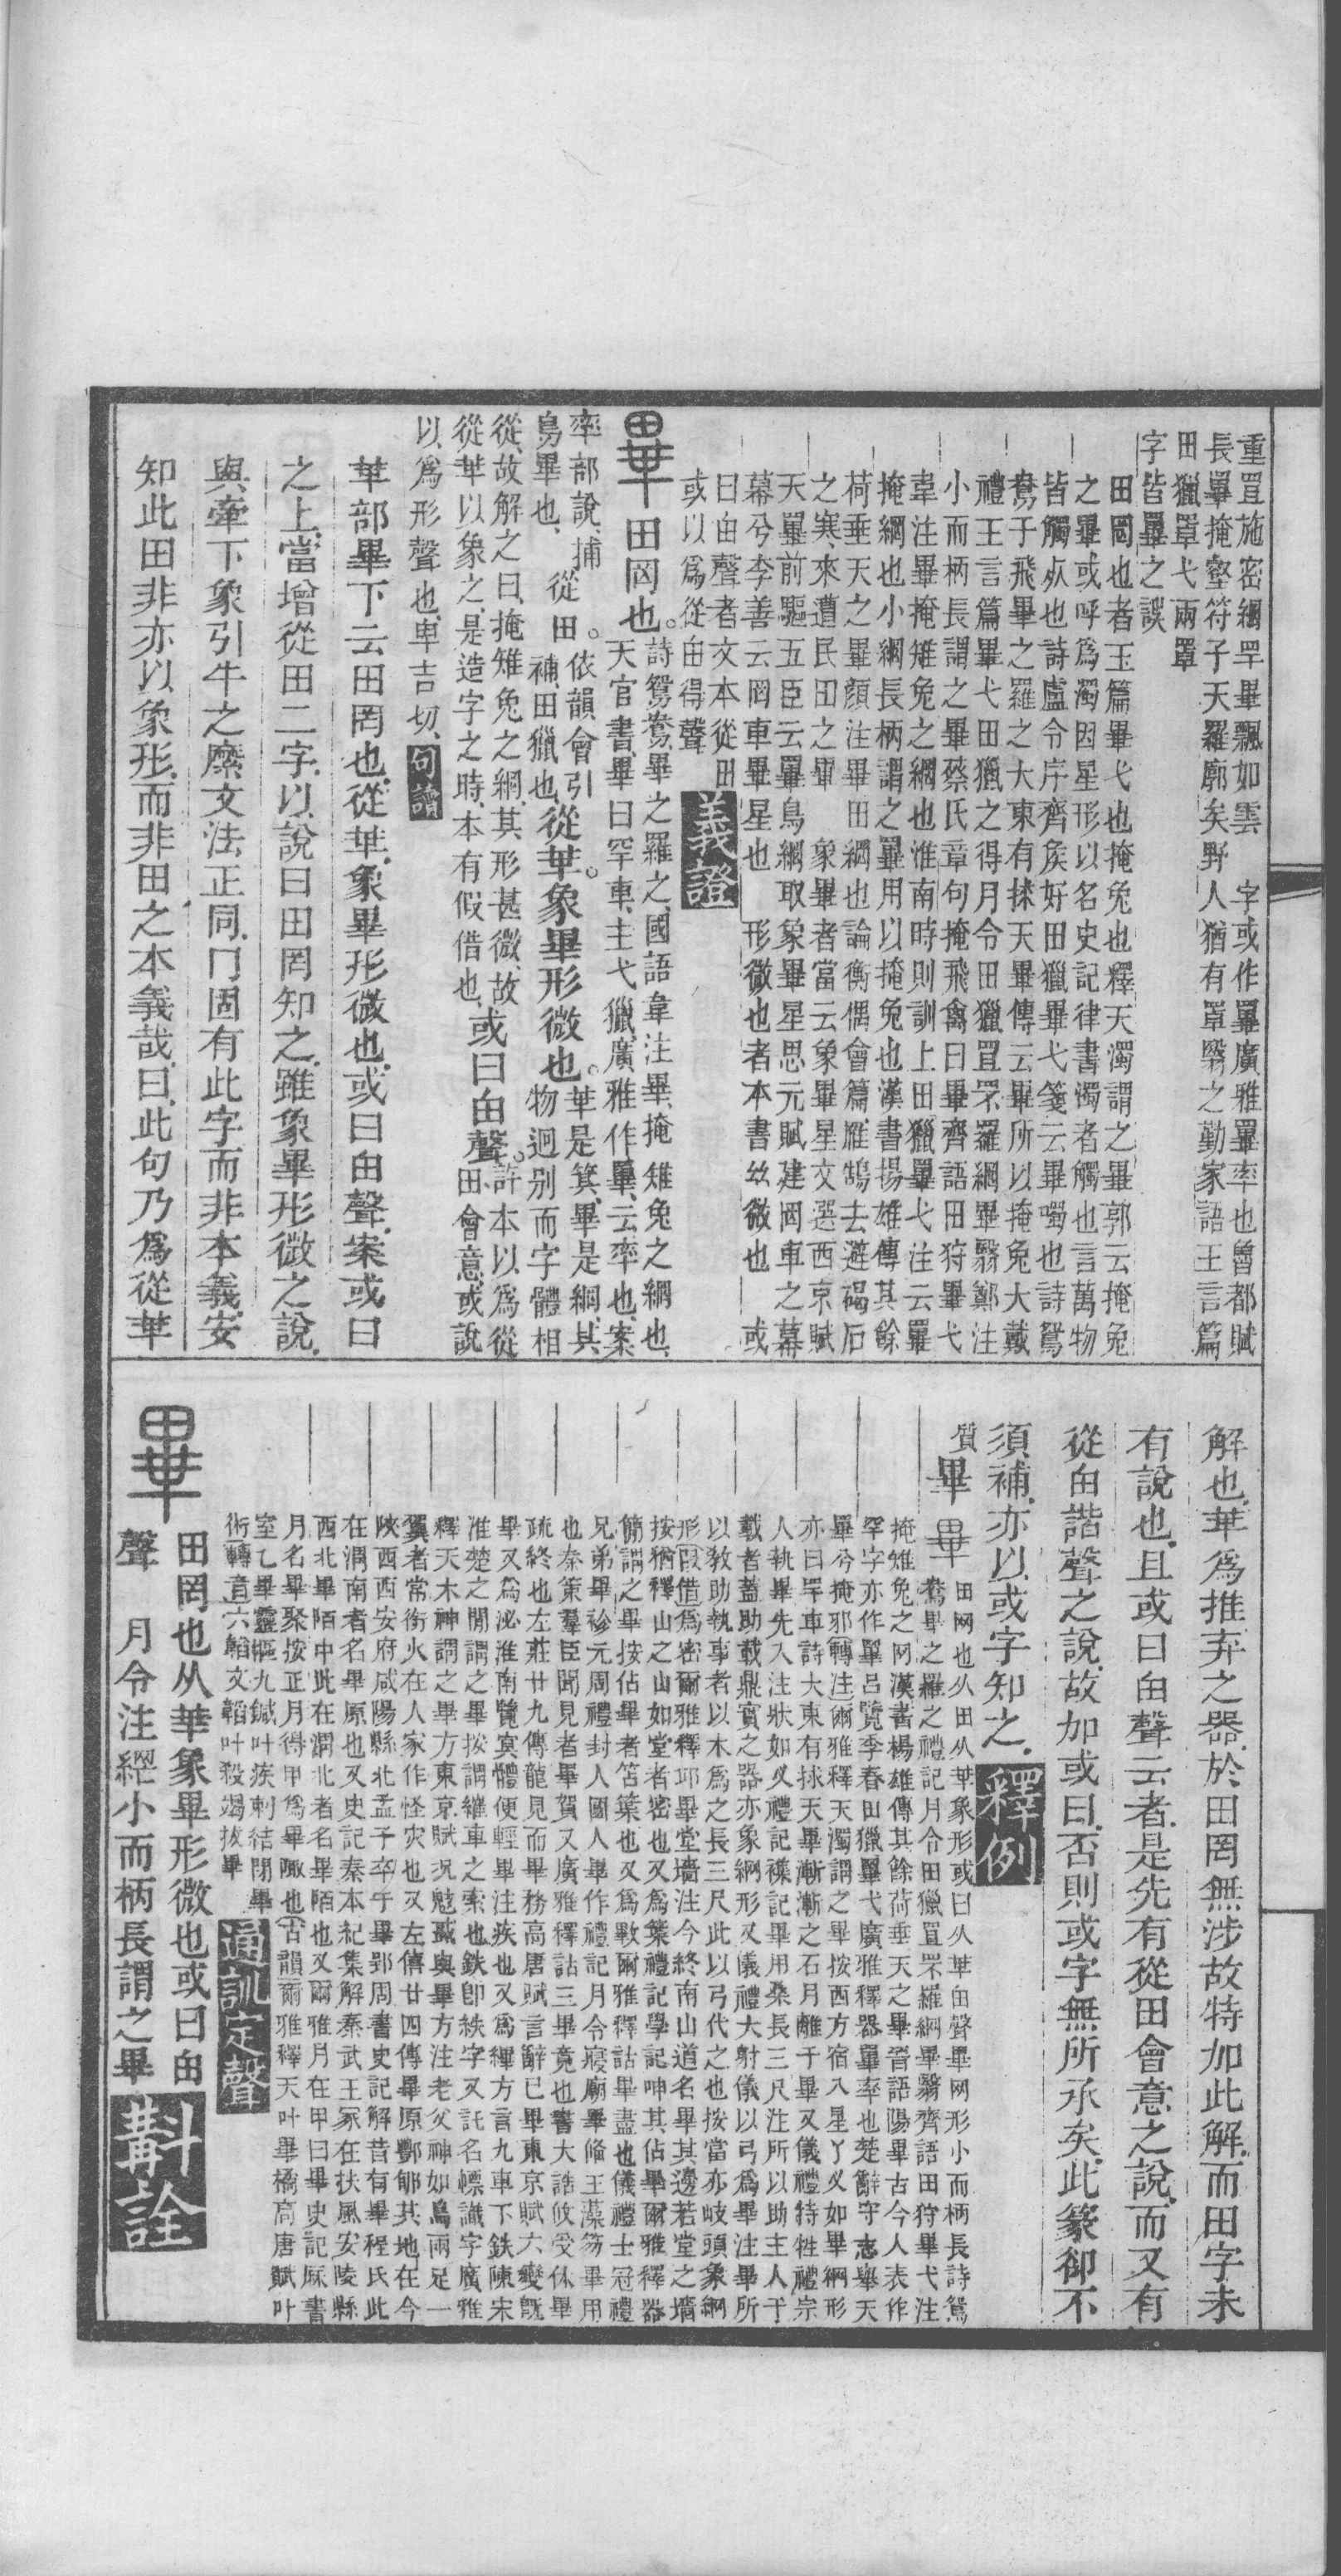 重罝施密綱罕畢飄如雲　字或作罼廣雅罼率也曾都賦
長罼掩壑符子天羅廓矣野人猶有罩罬之勤家語王言篇
田獵罩弋兩罩
字皆罼之誤
田罔也者玉篇畢弋也掩兔也釋天濁謂之畢郭云掩兔
之畢或呼爲濁因星形以名史記律書濁者觸也言萬物
皆觸㱙也詩盧令序齊矦好田獵畢弋箋云畢噣也詩鴛
鴦于飛畢之羅之大東有捄天畢傳云畢所以掩兔大戴
禮王言篇畢弋田獵之得月令田獵罝罘羅網畢翳鄭注
小而柄長謂之畢蔡氏章句掩飛禽曰畢齊語田狩畢弋
韋注畢掩雉兔之網也淮南時則訓上田獵畢弋注云罼
掩綱也小綱長柄謂之罼用以掩兔也漢書揚雄傳其餘
荷垂天之畢顏注畢田綱也論衡偶會篇雁鵠去避碣石
之寒來遭民田之畢　象畢者當云象畢星文選西京賦
天罼前驅五臣云罼鳥網取象畢星思元賦建罔車之幕
幕兮李善云罔車畢星也　形微也者本書𢆶微也　或
曰甶聲者文本從田
或以爲從甶得聲
義證
畢田罔也。詩鴛鴦畢之羅之國語韋注畢掩雉兔之網也
天官書畢曰罕車主弋獵廣雅作罼云率也案
率部說捕鳥畢也從田。依韻會引補田獵也從𠦒。象畢形微也。𠦒是箕畢是綱其物迥別而字體相
從故解之曰掩雉兔之網其形甚微故或曰甶聲。許本以爲從
從𠦒以象之是造字之時本有假借也田會意或說
以爲形聲也卑吉切
句讀
𠦒部畢下云田罔也從𠦒象畢形微也或曰甶聲案或曰
之上當增從田二字以說曰田罔知之雖象畢形微之說
與牽下象引牛之縻文法正同冂固有此字而非本義安
知此田非亦以象形而非田之本義哉曰此句乃爲從𠦒
解也𠦒爲推弃之器於田罔無涉故特加此解而田字未
有說也且或曰甶聲云者是先有從田會意之說而又有
從甶諧聲之說故加或曰否則或字無所承矣此篆卻不
須補亦以或字知之
釋例
質畢　畢　田网也从田从𠦒象形或曰从𠦒甶聲畢网形小而柄長詩鴛
鴦畢之羅之禮記月令田獵罝罘羅網畢翳齊語田狩畢弋注
掩雉兔之网漢書楊雄傳其餘荷垂天之畢晉語陽畢古今人表作
罕字亦作罼呂覽季春田獵罼弋廣雅釋器罼率也楚辭守志舉天
畢兮掩邪轉注爾雅釋天濁謂之畢按西方宿八星丫叉如畢綱形
亦曰罕車詩大東有捄天畢漸漸之石月離于畢又儀禮特牲禮宗
人執畢先入注狀如叉禮記襍記畢用桑長三尺注所以助主人于
載者蓋助載鼎實之器亦象綱形又儀禮大射儀以弓爲畢注畢所
以敎助執事者以木爲之長三尺此以弓代之也按當亦岐頭象綱
形假借爲密爾雅釋邱畢堂墻注今終南山道名畢其邊若堂之墻
按猶釋山之山如堂者密也又爲䈼禮記學記呻其佔畢爾雅釋器
簡謂之畢按佔畢者笘䈼也又爲斁爾雅釋詁畢盡也儀禮士冠禮
兄弟畢袗元周禮封人國人畢作禮記月令寢廟畢條王藻笏畢用
也秦策羣臣聞見者畢賀又廣雅釋詁三畢竟也書大誥攸受休畢
疏終也左莊廿九傳龍見而畢務高唐賦言辭已畢東京賦六變旣
畢又爲泌淮南覽冥體便輕畢注疾也又爲縪方言九車下鉄陳宋
淮楚之閒謂之畢按謂維車之索也鉄卽紩字又託名幖識字廣雅
釋天木神謂之畢方東京賦況鬾蜮與畢方注老父神如鳥兩足一
翼者常銜火在人家作怪灾也又左僖廿四傳畢原酆郇其地在今
陝西西安府咸陽縣北孟子卒于畢郢周書史記解昔有畢程氏此
在渭南者名畢原也又史記秦本紀集解秦武王冢在扶風安陵縣
西北畢陌中此在渭北者名畢陌也又爾雅月在甲曰畢史記厤書
月名畢聚按正月得甲爲畢陬也古韻爾雅釋天叶畢橘高唐賦叶
室乙畢靈樞九鍼叶疾刺結閉畢
術轉音六韜文韜叶殺竭拔畢
通訓定聲
畢　田罔也从𠦒象畢形微也或曰甶
聲　月令注綱小而柄長謂之畢
斠詮